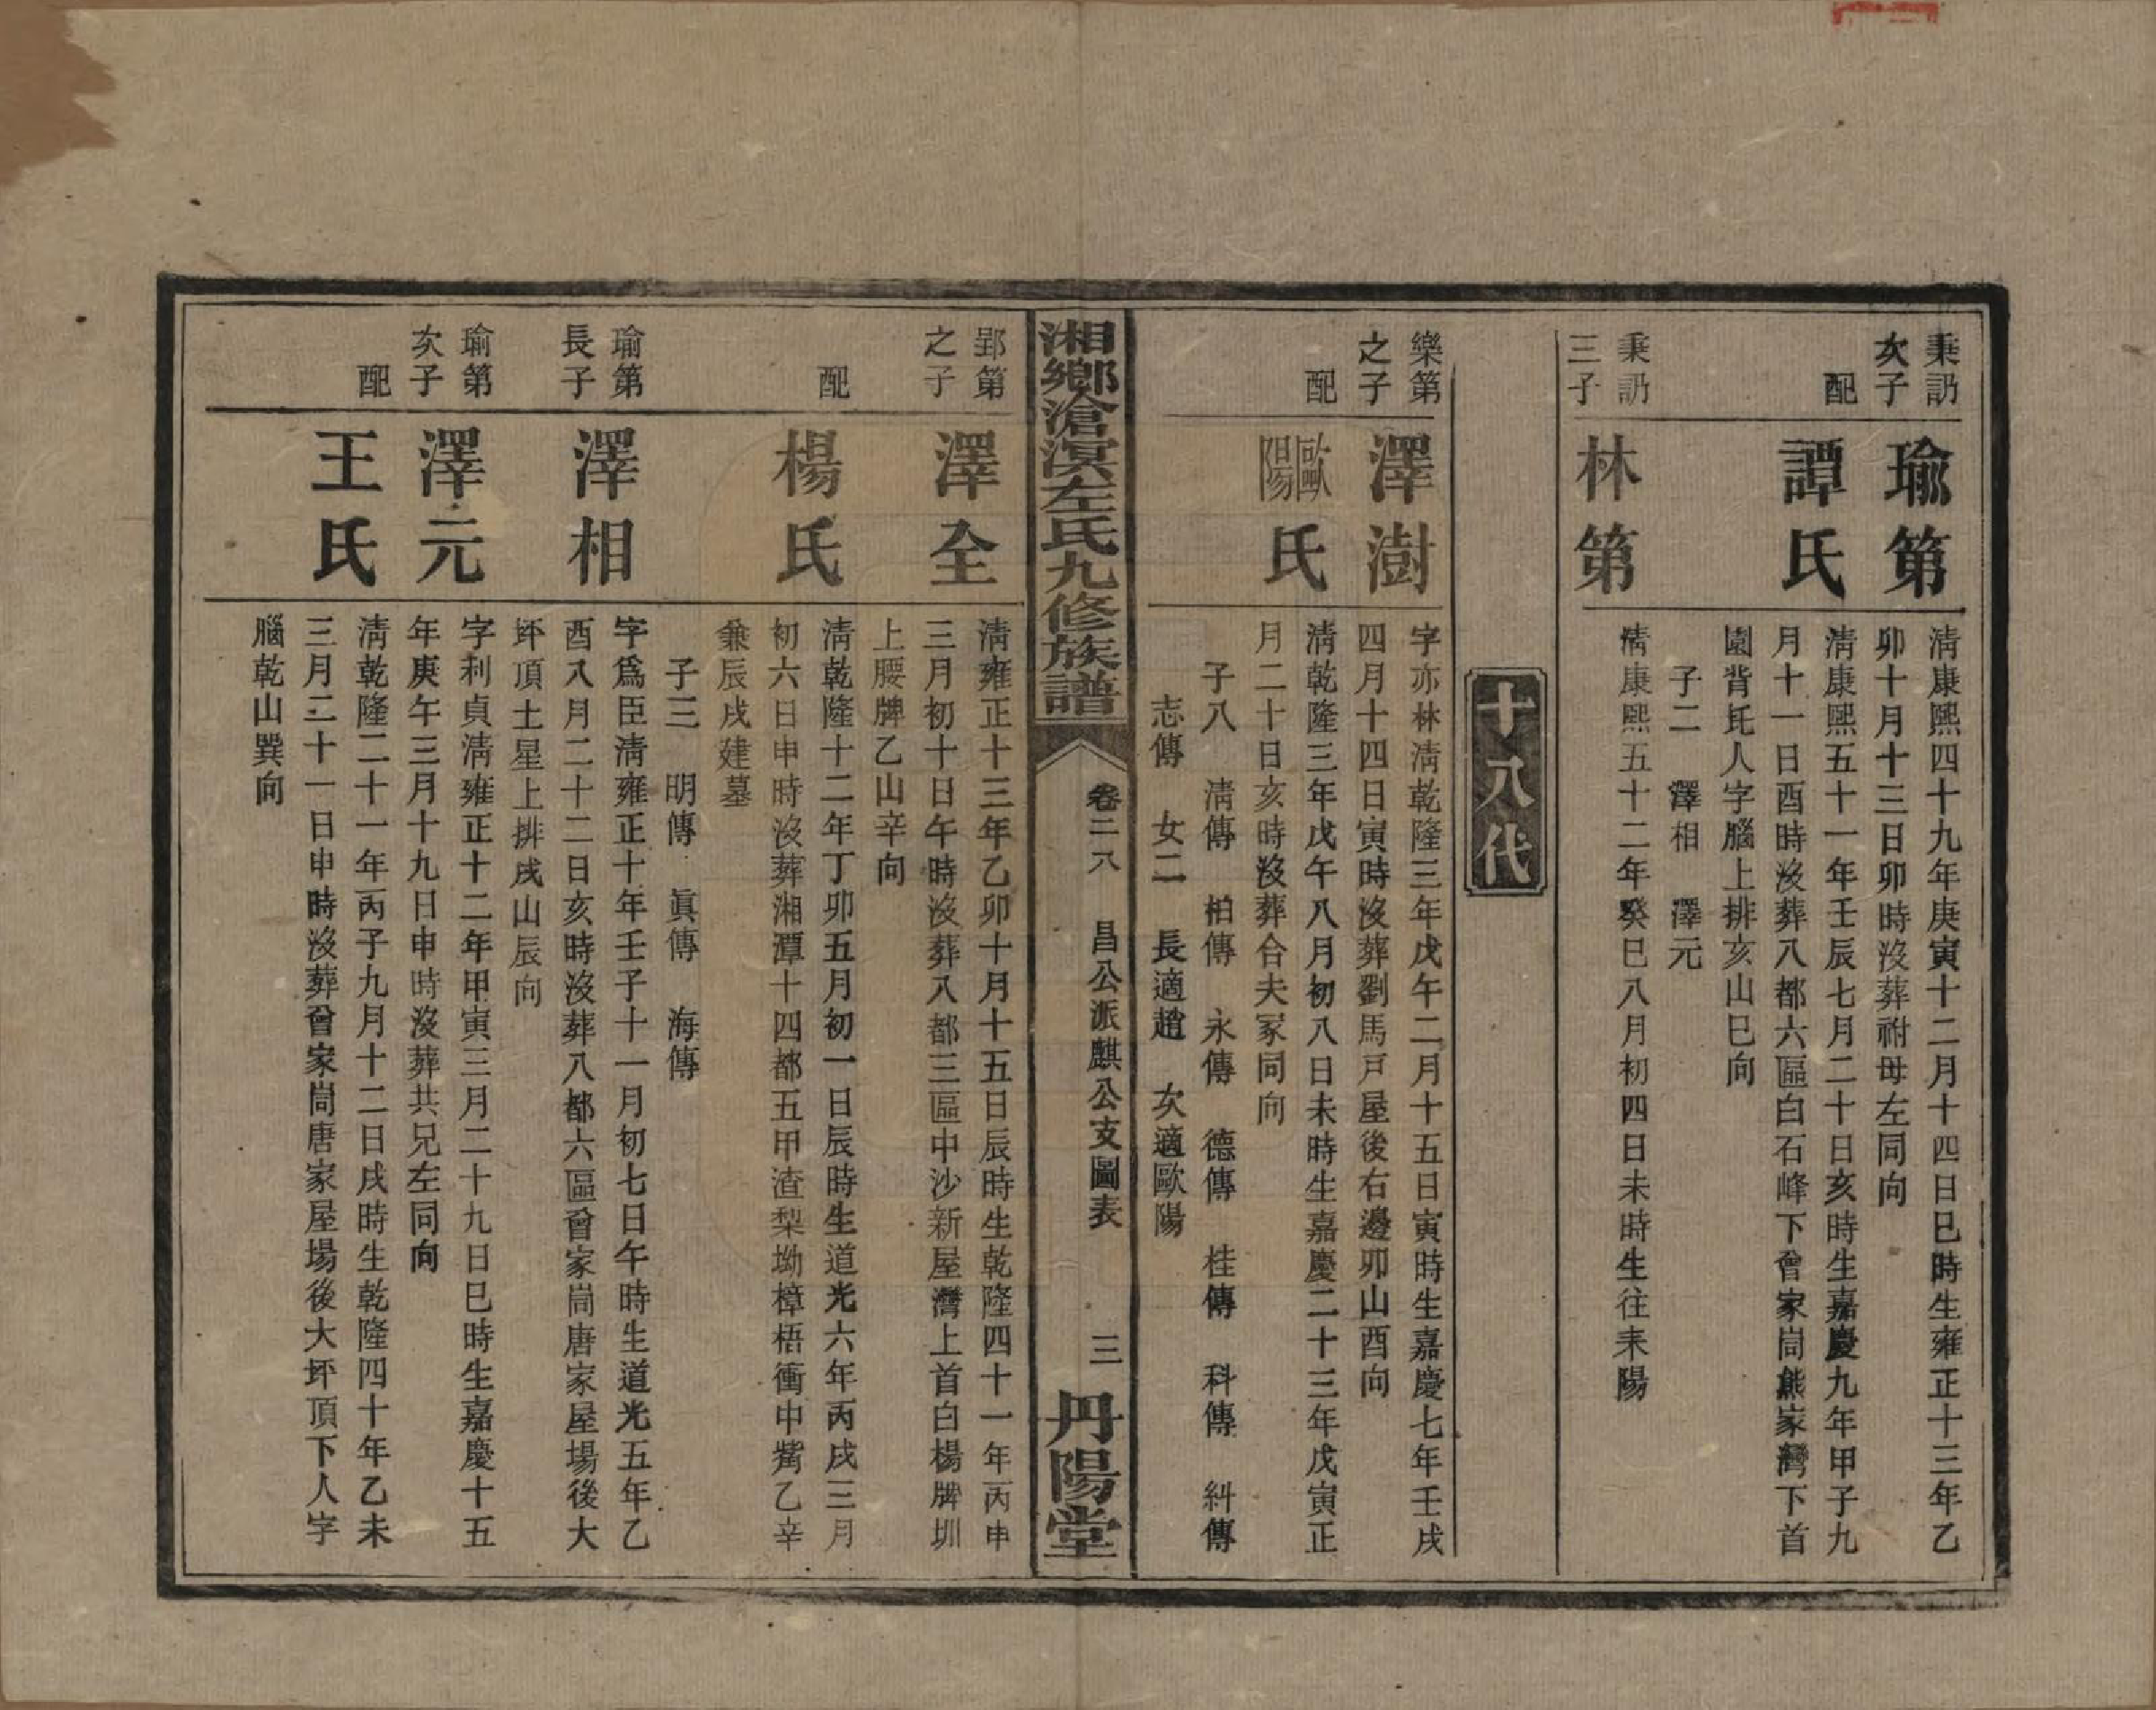 秉訒
次子
瑜第
清康熙四十九年庚寅十二月十四日巳時生雍正十三年乙
卯十月十三日卯時沒葬祔母左同向
配
譚氏
清康熙五十一年壬辰七月二十日亥時生嘉慶九年甲子九
月十一日酉時沒葬八都六區白石峰下曾家崗熊家灣下首
園背託人字腦上排亥山巳向
子二　澤相　澤元
秉訒
三子
林第
清康熙五十二年癸巳八月初四日未時生往耒陽
十八代
樂第
之子
澤澍
字亦林清乾隆三年戊午二月十五日寅時生嘉慶七年壬戌
四月十四日寅時沒葬劉馬戸屋後右邊卯山酉向
配
歐陽氏
清乾隆三年戊午八月初八日未時生嘉慶二十三年戊寅正
月二十日亥時沒葬合夫冢同向
子八　清傳　柏傳　永傳　德傳　桂傳　科傳　糾傳
志傳　女二　長適趙　次適歐陽
湘鄉滄溟左氏九修族譜
卷二八　昌公派麒公支圖表　三
丹陽堂
郢第
之子
澤全
清雍正十三年乙卯十月十五日辰時生乾隆四十一年丙申
三月初十日午時沒葬八都三區中沙新屋灣上首白楊牌圳
上腰牌乙山辛向
配
楊氏
清乾隆十二年丁卯五月初一日辰時生道光六年丙戌三月
初六日申時沒葬湘潭十四都五甲渣梨坳樟梧衝中觜乙辛
兼辰戌建墓
子三　明傳　眞傳　海傳
瑜第
長子
澤相
字爲臣清雍正十年壬子十一月初七日午時生道光五年乙
酉八月二十二日亥時沒葬八都六區曾家崗唐家屋場後大
坪頂土星上排戌山辰向
瑜第
次子
澤元
字利貞清雍正十二年甲寅三月二十九日巳時生嘉慶十五
年庚午三月十九日申時沒葬共兄左同向
配
王氏
清乾隆二十一年丙子九月十二日戌時生乾隆四十年乙未
三月二十一日申時沒葬曾家崗唐家屋場後大坪頂下人字
腦乾山巽向